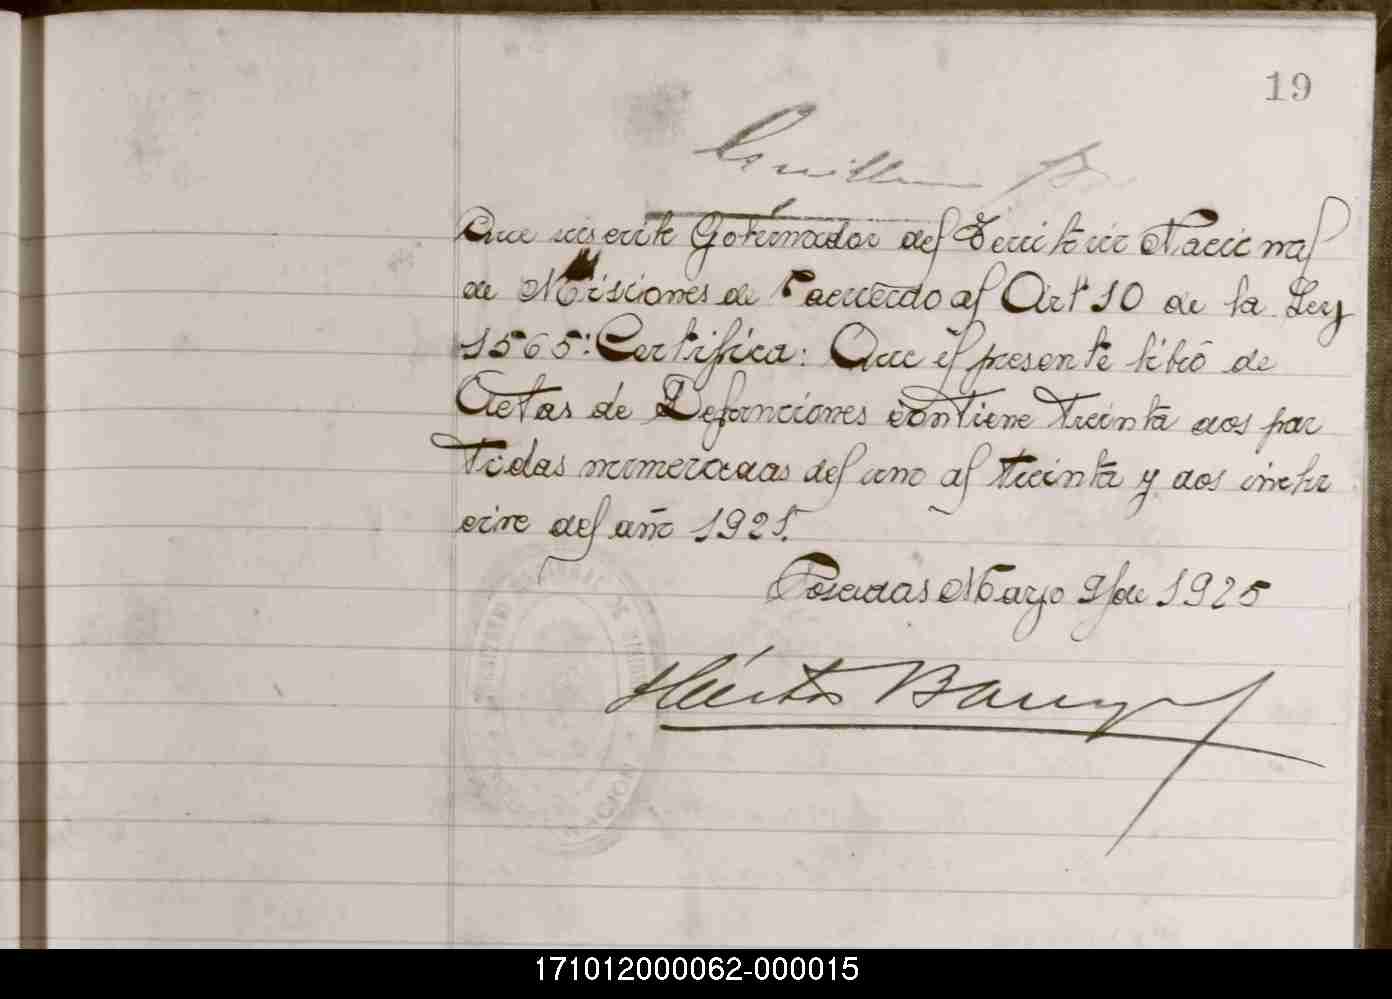 19
Guillermo
Que suscrite Gobernador del Territorio Nacional
de Misiones de acuerdo al Art 10 de la Ley
1565: Certifica: Que el presente libro de
Actas de Defunciones contiene treinta dos par
tidas numeradas del uno al treinta y dos inclu
sive del año 1921.
Posadas Mayo 9 de 1925
Héctor Barreyro
NACION
171012000062-000015